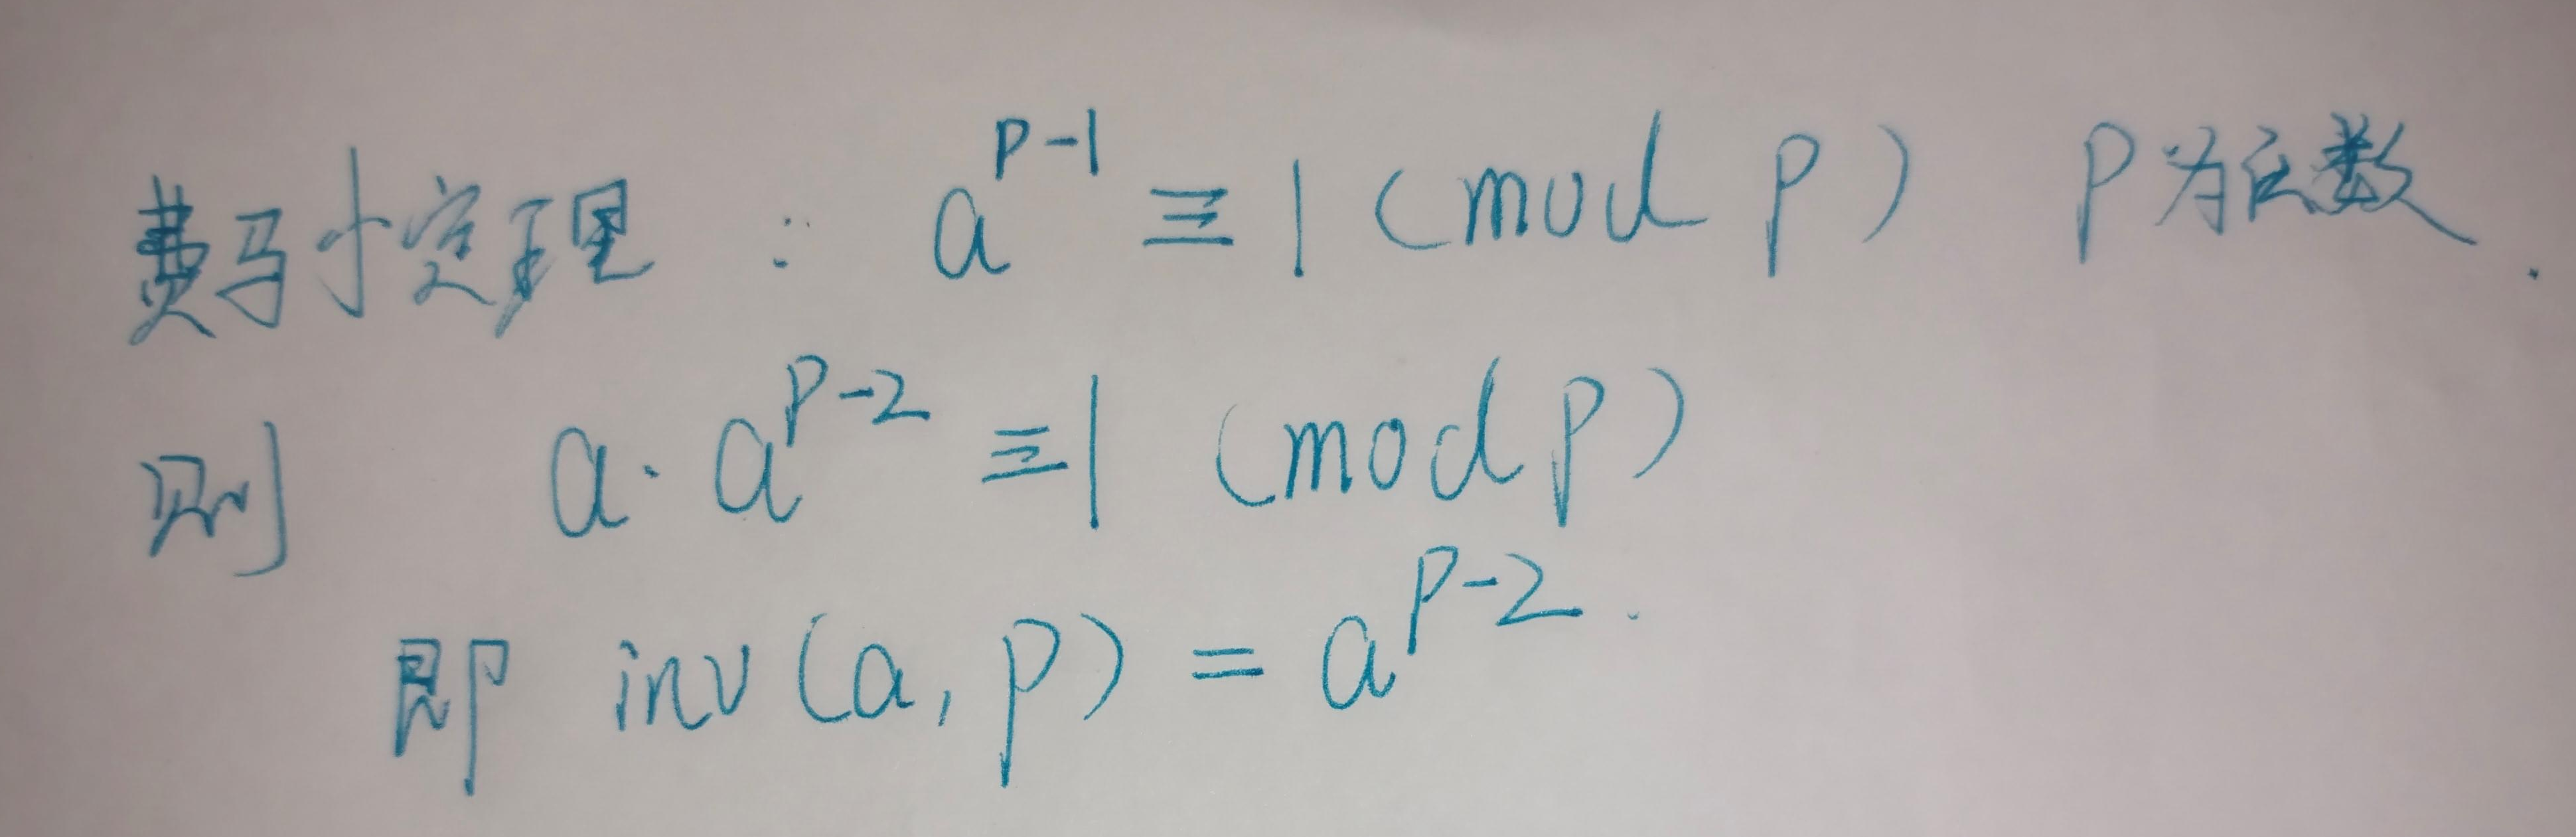 费马小定理 : a^{p-1} ≡ 1 (mod p) p为质数.
则 a · a^{p-2} ≡ 1 (mod p)
即 inv(a, p) = a^{p-2}.